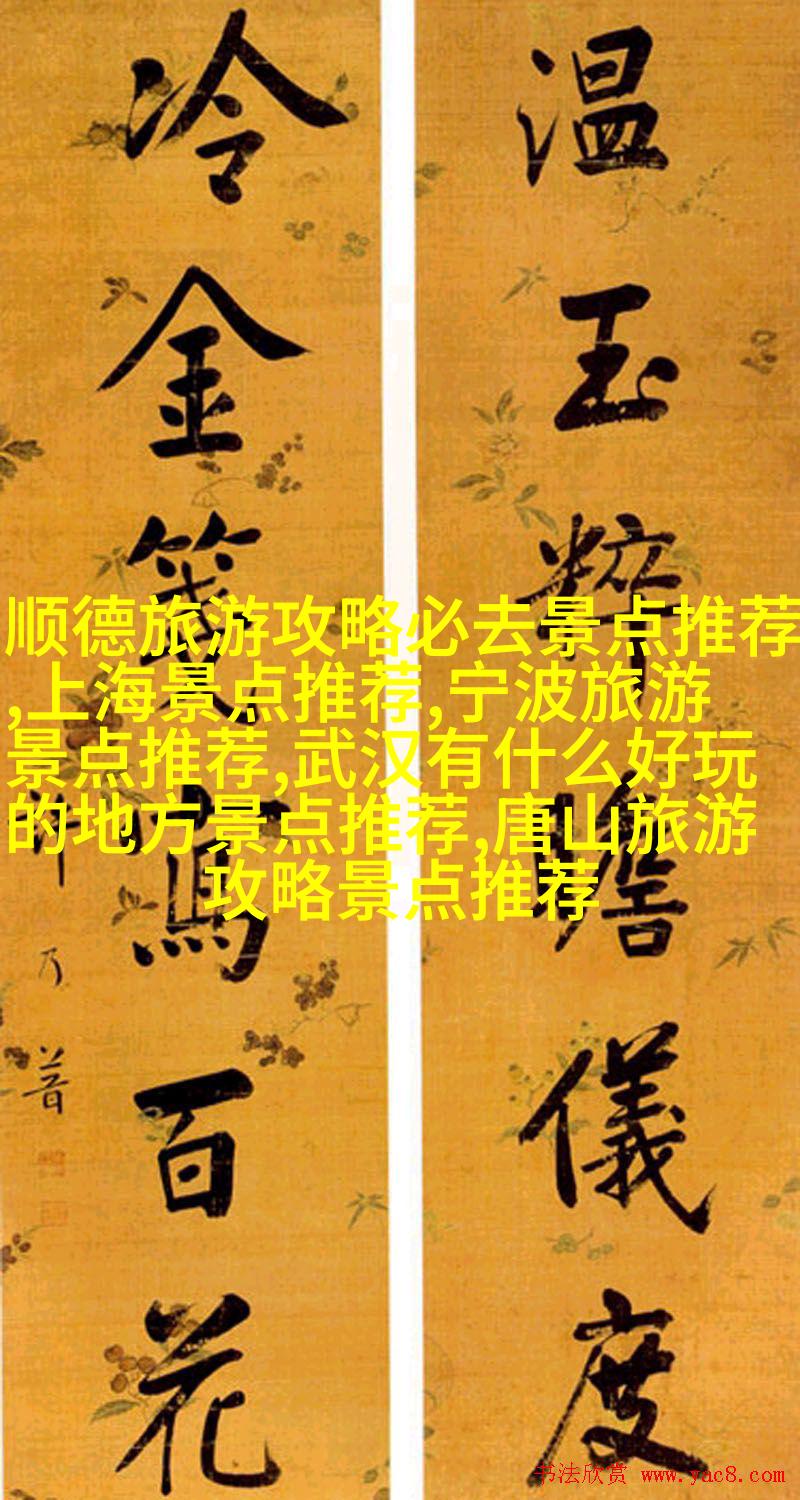 温
玉
粹
瞻
儀
度
冷
金
箋
寫
百
花
乃
普
顺德旅游攻略必去景点推荐
,上海景点推荐,宁波旅游
景点推荐,武汉有什么好玩
的地方景点推荐,唐山旅游
攻略景点推荐
书法欣赏 www.yac8.com